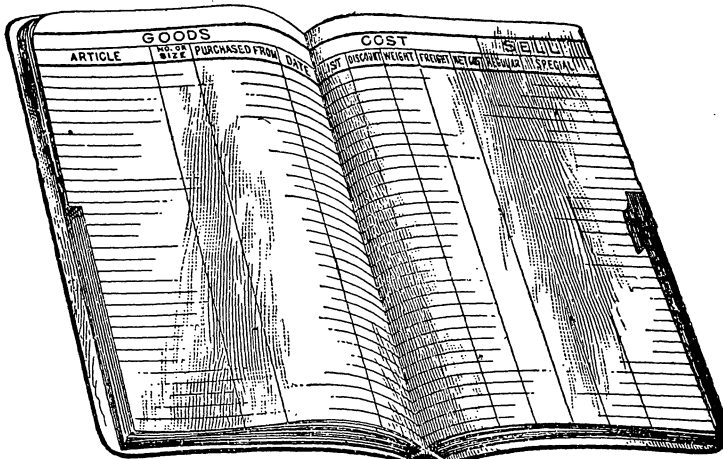 GOODS
ARTICLE NO. OR SIZE PURCHASED FROM DATE
COST SELL
LIST DISCOUNT WEIGHT FREIGHT NET COST REGULAR SPECIAL